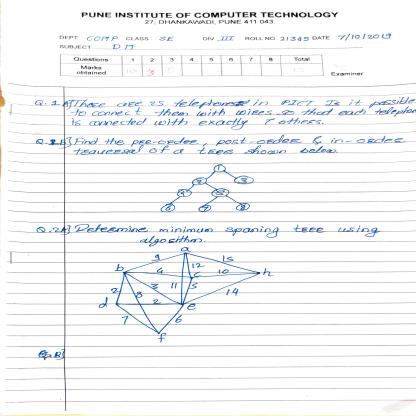 PUNE INSTITUTE OF COMPUTER TECHNOLOGY
27, DHANKAWADI, PUNE 411 043.
DEPT. COMP CLASS SE DIV III ROLL NO. 21345 DATE 7/10/2019
SUBJECT DM
Questions 1 2 3 4 5 6 7 8 Total
Marks obtained
Examiner
Q.1 A] There are 25 telephones in PICT. Is it possible
to connect them with wires so that each telephone
is connected with exactly 7 others.
Q.1 B] Find the pre-order, post-order & in-order
traversal of a tree shown below.
1
2 3
4 5
6 7 8
Q.2A] Determine minimum spaning tree using
algorithm.
a
9 12 15
b 4 c 10 h
2 8 3 11 5 14
d 2 e
7 6
f